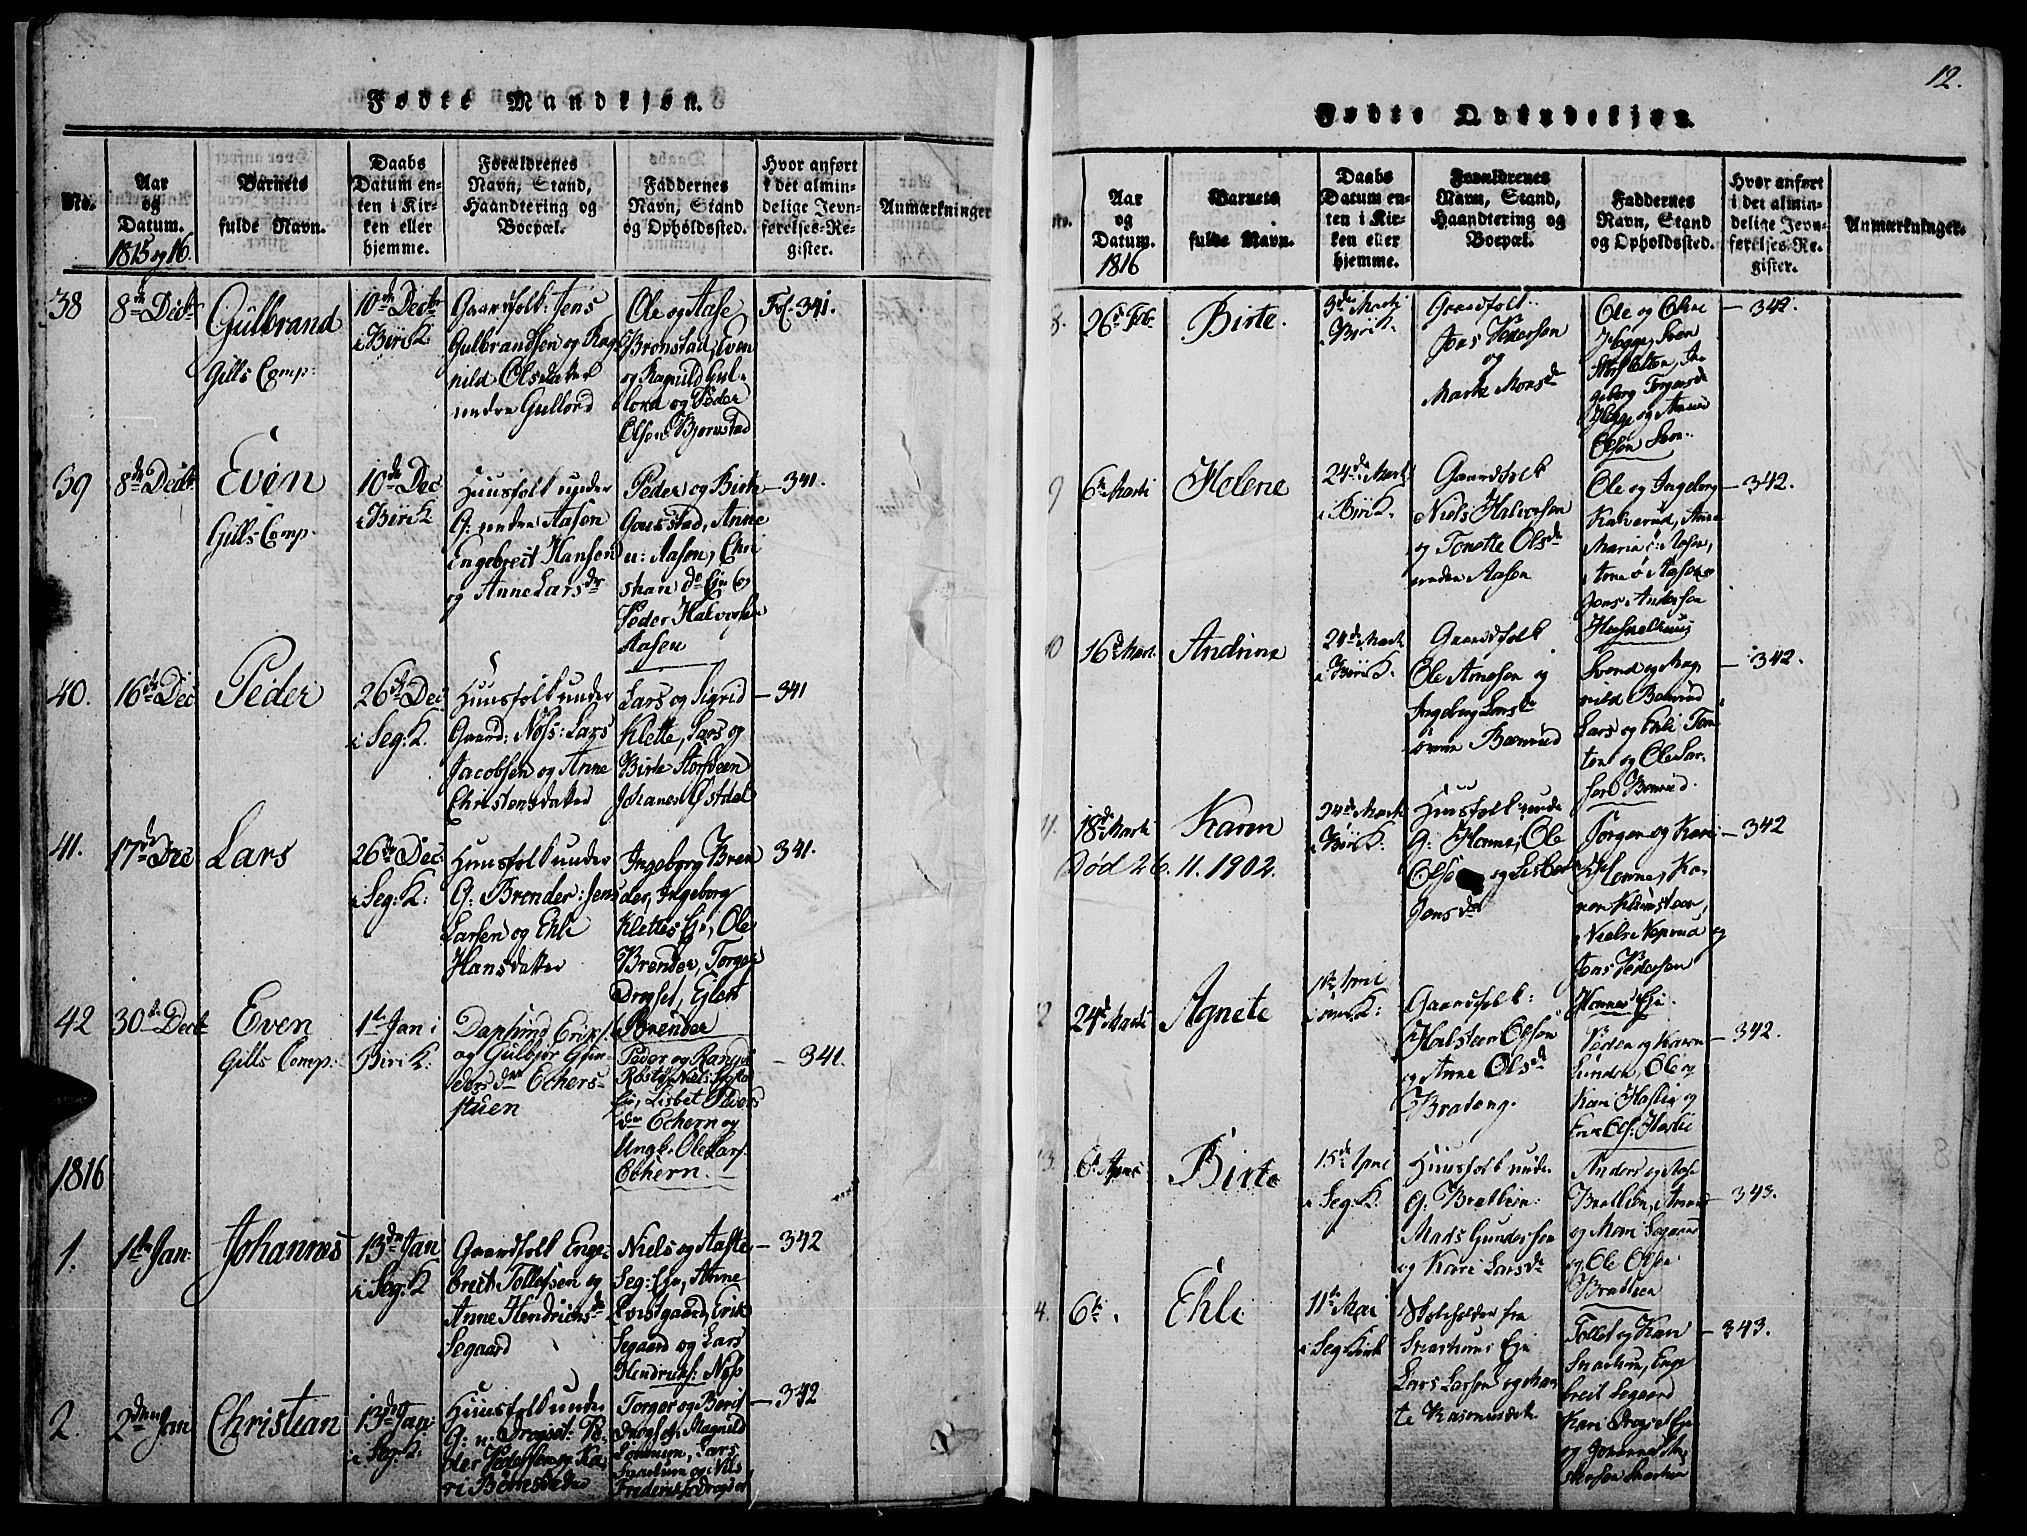 12.
Fødte Mandkjøn.
No.
Aar
og
Datum.
1815 og 16.
Barnets
fulde Navn.
Daabs
Datum en-
ten i Kir-
ken eller
hjemme.
Forældrenes
Navn, Stand,
Haandtering og
Boepæl.
Faddernes
Navn, Stand
og Opholdssted.
Hvor anført
i det almin-
delige Jevn-
førelses-Re-
gister.
Anmærkninger
38
8de Decbr
Gulbrand
Gills Comp:
10de Decbr
i Biri K.
Gaardfolk: Jens
Gulbrandsen og Rag-
nild Olsdatter
nedre Gullord
Ole og Aase
Bronstad, Even
og Ragnild Gul-
lord og Peder
Olsen Bjornstad
Fol. 341.
39
8de Decbr
Even
Gills Comp.
10de Dec
i Biri K
Huusfolk under
G: nedre Aasen
Engebret Hansen
og Anne Larsdr
Peder og Birte
Gaurstad, Anne
n: Aasen, Chri
stian do Eje og
Peder Halvorsen
Aasen
- 341.
40.
16de Dec
Peder
26de Dec.
i Seg. K.
Huusfolk under
Gaard: Nøss: Lars
Jacobsen og Anne
Christensdatter
Lars og Sigrid
Klette, Lars og
Birte Storsveen
Johanes Østdal
- 341
41.
17de Dec
Lars
26de Dec:
i Seg. K:
Huusfolk under
G: Brender: Jens
Larsen og Ehli
Hansdatter
Ingeborg Bren
der, Ingeborg
Klettes Eje, Ole
Brender, Torger
Dragset, Eylert
Brender
341.
42
30de Decbr
Even
Gills Comp:
1ste Jan i
Biri K:
Dagfind Eriks.
og Gulbjør Gun-
dersdr Echers-
stuen
Peder og
Niels
Eje, Lisbet Peders
dr Echern og
Ungk. Ole Lars.
Echern.
341.
1816
1.
1ste Jan:
Johannes
13de Jan
i Seg: K
Gaardfolk Enge-
bret Tollefsen og
Anne Hendrichsdr
Segaard
Niels og Aaste
Seg: Eje, Anne
Qvistgaard, Erik
Segaard og Lars
Hendricks: Nøss
- 342
2.
2den Jan
Christian
13de Jan:
i Seg. K:
Huusfolk unde
G: n: Dragset: Pe-
der Pedersen og Ka-
ri
Torger og Berit
Dragset, Ragnild
Lars
Snartum og Nils
Frederiks Dragset
- 342
Fødte Qvindekjøn.
No.
Aar
og
Datum.
1816
Barnets
fulde Navn.
Daabs
Datum en-
ten i Kir-
ken eller
hjemme.
Forældrenes
Navn, Stand,
Haandtering og
Boepæl.
Faddernes
Navn, Stand
og Opholdssted.
Hvor anført
i det almin-
delige Jevn-
førelses-Re-
gister.
Anmærkninger.
8.
26de Feb.
Birte.
3de Marti
i Biri K.
Gaardfolk:
Jens Pedersen
og
Marte Monsdr
Ole og Oline
Hogge, Sven
In
geborg Torgersdr
Hogge og Amund
Olsen Sven.
- 342.
9
6te Marti
Helene
24de Marti
i Biri K.
Gaardfolk
Niels Halvorsen
og Tonette Olsdr
nedre Aasen
Ole og Ingeborg
Kalverud, Anne
Marie ø: Aasen,
Arne ø: Aasen og
Jens Andersen
Hasselknus
- 342.
10
16de Marti
Andrine
24de Marti
i Biri K.
Gaardfolk
Ole Arnesen og
Ingeborg Larsdr
øvere Bonrud
Svend og Rag
nild Bonrud
Lars og Ehli Tom
ten og Ole Lar-
sen Bonrud.
- 342.
11.
18de Marti
Karen
24de Marti
i Biri K:
Huusfolk unde
G: Honne, Ole
Olse og Lisbet
Jensdr
Torger og Kari
Honne, Ka-
ren
Niels Koprud og
Jens Pedersen
Honnes Eje.
- 342
Død 26.11.1902.
12
24de Marti
Agnete
1ste April
i øvre K:
Gaardfolk:
Halstein Olsen
og Anne Olsdr
Brateng.
Peder og Karen
Lunden, Ole og
Kari Haslie og
Erik Ols. Haslie
- 342.
13.
6te April
Birte
15de April
i Seg: K.
Huusfolk unde
G: Bratlien:
Mads Gundersen
og Kari Larsdr
Anders og Aase
Bratlien, Amund
og Mari Segaard
og Ole Olsen
Bratlien
- 343.
14.
6te.
Ehli
11te Mai
i Seg Kirk
Skoleholder fra
Snartums Eje
Lars Larsen og Mar
te Rasmusdatr
Tollef og Kari
Snartum, Enge
bret Segaard
Kari Dragset Eje
og Johannes
Snartum
- 343.